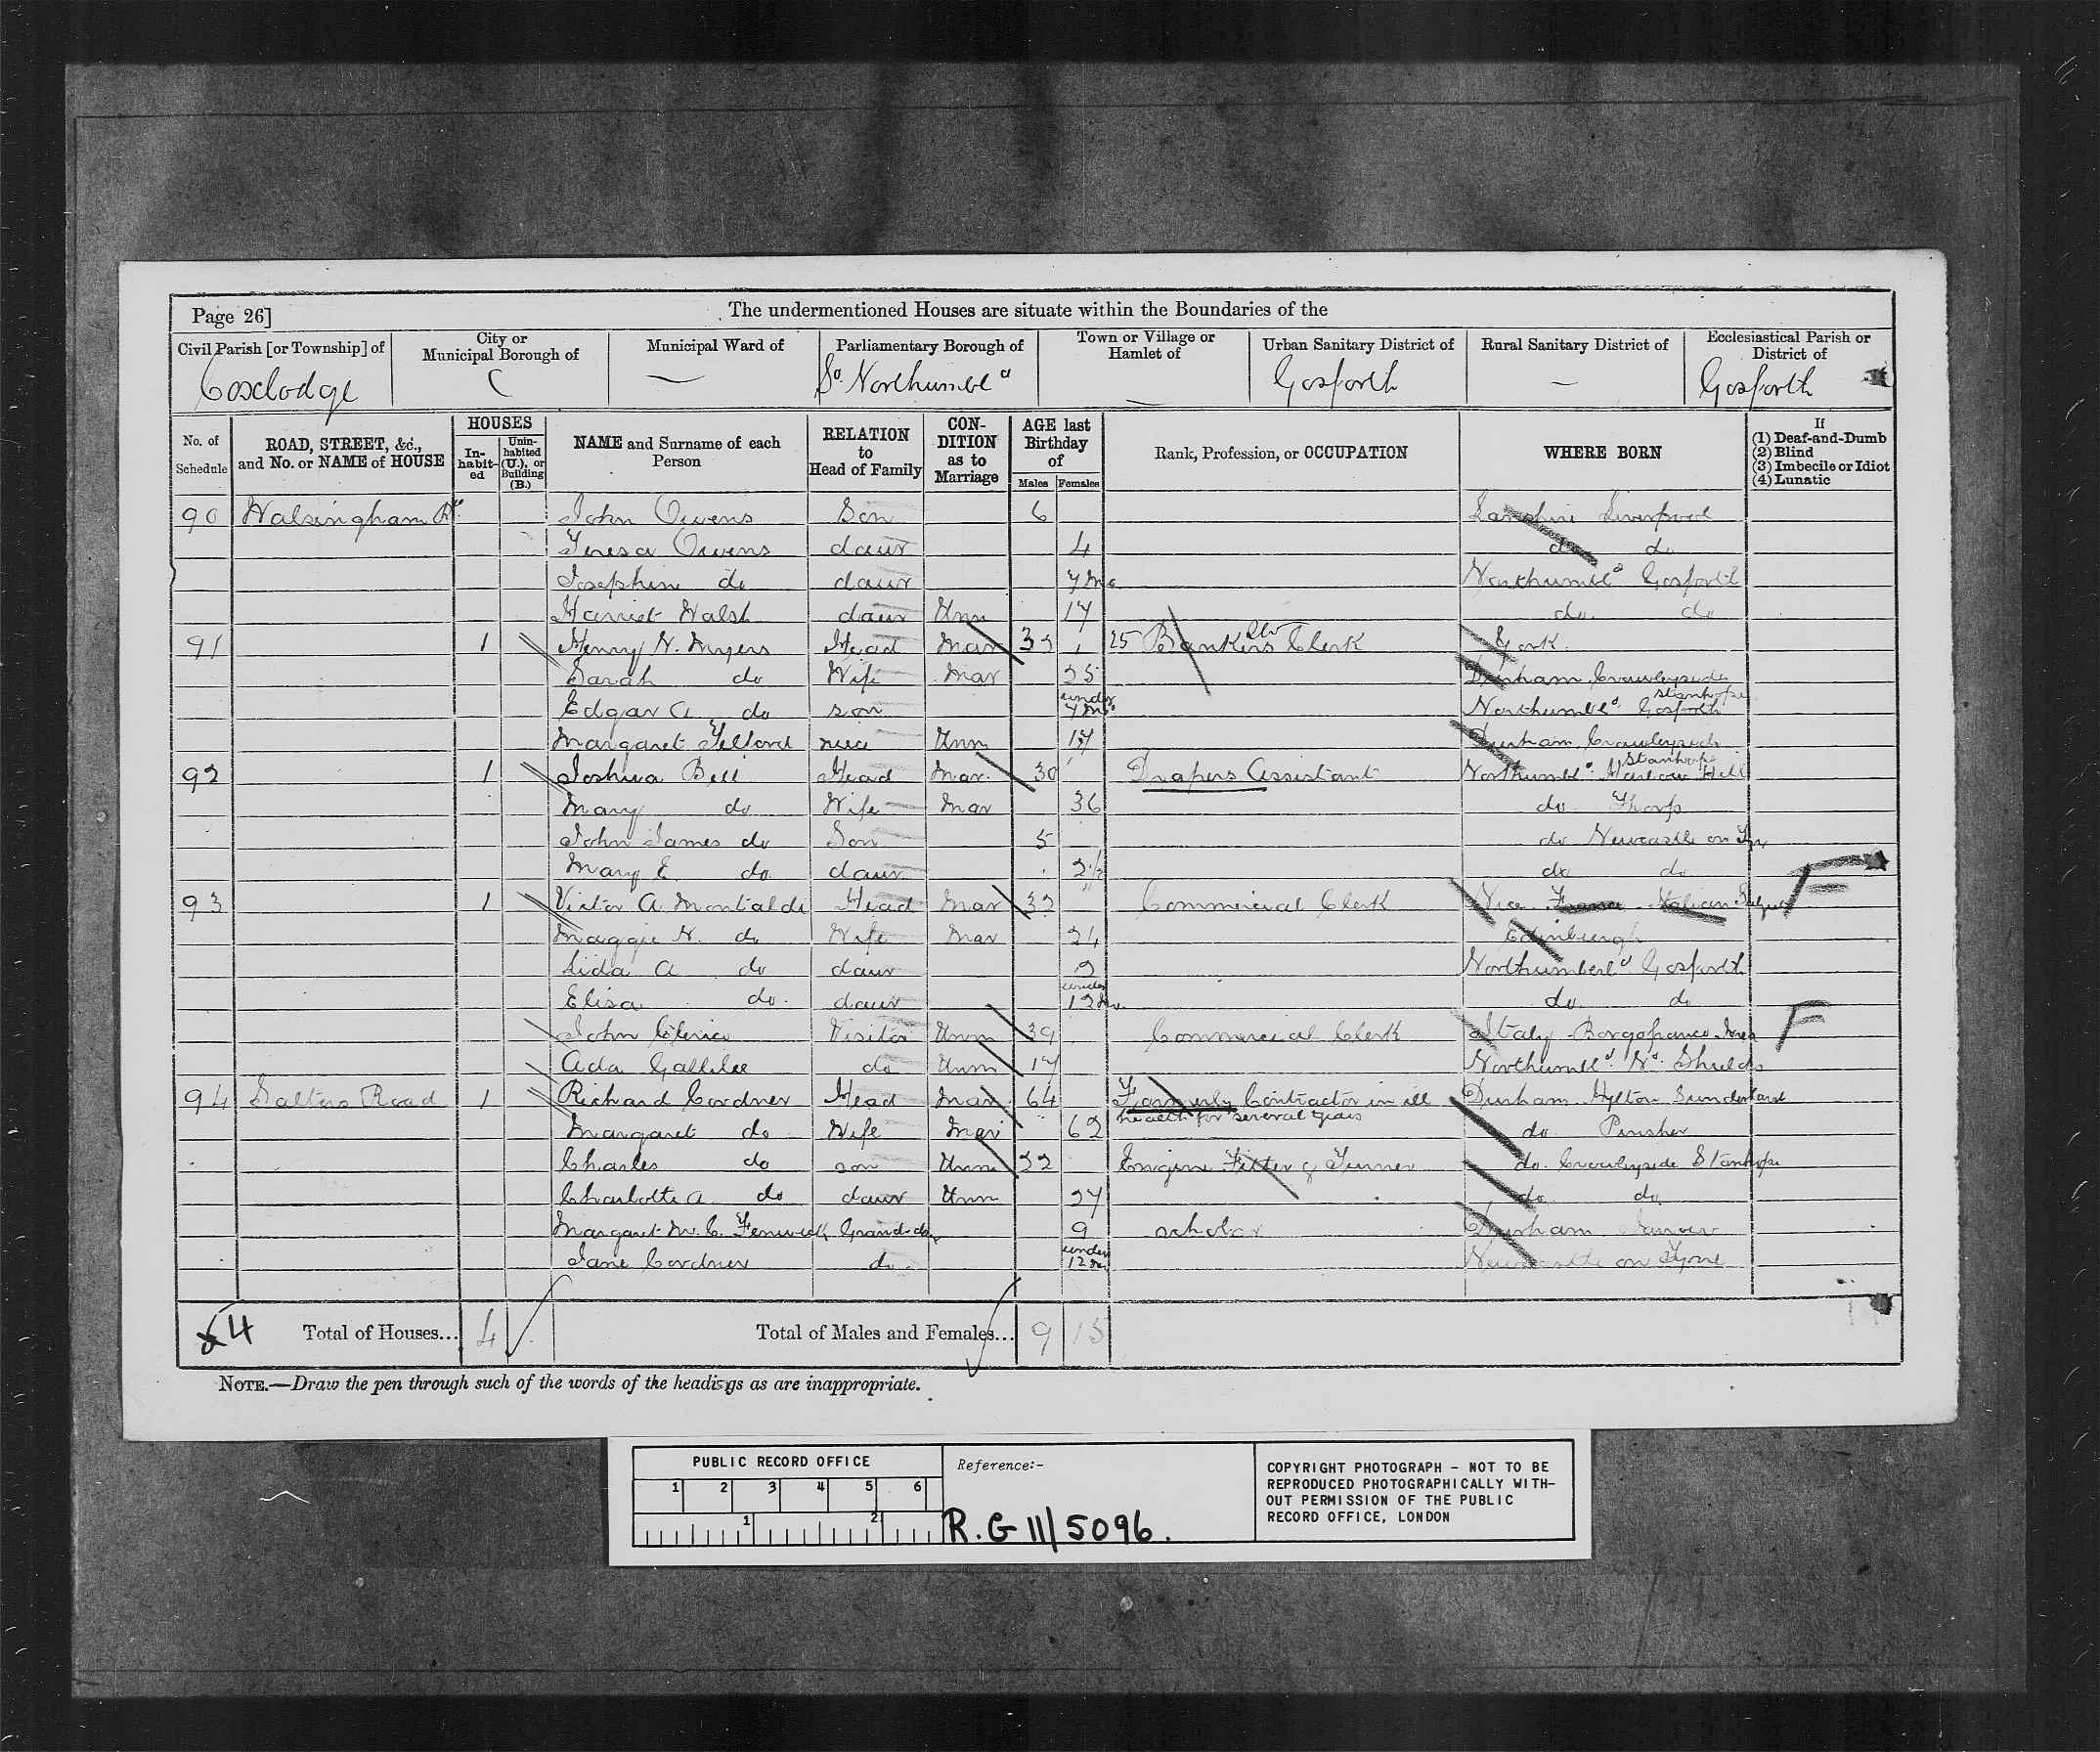 Page 26]
The undermentioned Houses are situate within the Boundaries of the
Civil Parish [or Township] of
City or Municipal Borough of
Municipal Ward of
Parliamentary Borough of
Town or Village or Hamlet of
Urban Sanitary District of
Rural Sanitary District of
Ecclesiastical Parish or District of
Coxlodge So. Northumbld Gosforth Gosforth
No. of Schedule
ROAD, STREET, &c., and No. or NAME of HOUSE
HOUSES
In-habit-ed
Unin-habited (U.), or Building (B.)
NAME and Surname of each Person
RELATION to Head of Family
CON-DITION as to Marriage
AGE last Birthday of
Males Females
Rank, Profession, or OCCUPATION
WHERE BORN
If
(1) Deaf-and-Dumb
(2) Blind
(3) Imbecile or Idiot
(4) Lunatic
90 Walsingham John Owens Son 6 Liverpool
Teresa Owens daur 4 do do
Josephine do daur 7 Mo Northumbld Gosforth
Harriet Walsh daur Unn 17 do do
91 1 Henry N. Myers Head Mar 25 Bankers Clerk York
Sarah do Wife Mar 25 Durham Crawleyside Stanhope
Edgar A do son under 7 Mos Northumbld Gosforth
Margaret Telford niece Unn 17 Durham Crawleyside Stanhope
92 1 Joshua Bell Head Mar. 30 Drapers Assistant Northumbld Harlow Hill
Mary do Wife Mar 36 do
John James do Son 5 do Newcastle on Tyne
Mary E do daur 2½ do do
93 1 Victor A Montaldi Head Mar 32 Commercial Clerk Nice France Italian Subject F
Maggie N. do Wife Mar 24 Edinburgh
Lida A do daur 2 Northumberld Gosforth
Elisa do. daur under 12 Mo. do do
John Clerico Visitor Unm 39 Commercial Clerk Italy Borgofranco F
Ada Gallilee do Unm 17 Northumbld No. Shields
94 Salters Road 1 Richard Cordner Head Mar 64 Formerly Contractor in ill health for several years Durham Hylton Sunderland
Margaret do Wife Mar 62 do Pensher
Charles do son Unm 22 Engine Fitter & Turner do. Crawleyside Stanhope
Charlotte A do daur Unm 27 do do
Margaret M. C. Fenwick Grand-daur 9 scholar Durham
Jane Cordner do under 12 Mo Newcastle on Tyne
4 Total of Houses... 4 Total of Males and Females... 9 15
NOTE.—Draw the pen through such of the words of the headings as are inappropriate.
PUBLIC RECORD OFFICE
1 2 3 4 5 6
1 2
Reference:-
R.G 11/5096.
COPYRIGHT PHOTOGRAPH - NOT TO BE
REPRODUCED PHOTOGRAPHICALLY WITH-
OUT PERMISSION OF THE PUBLIC
RECORD OFFICE, LONDON